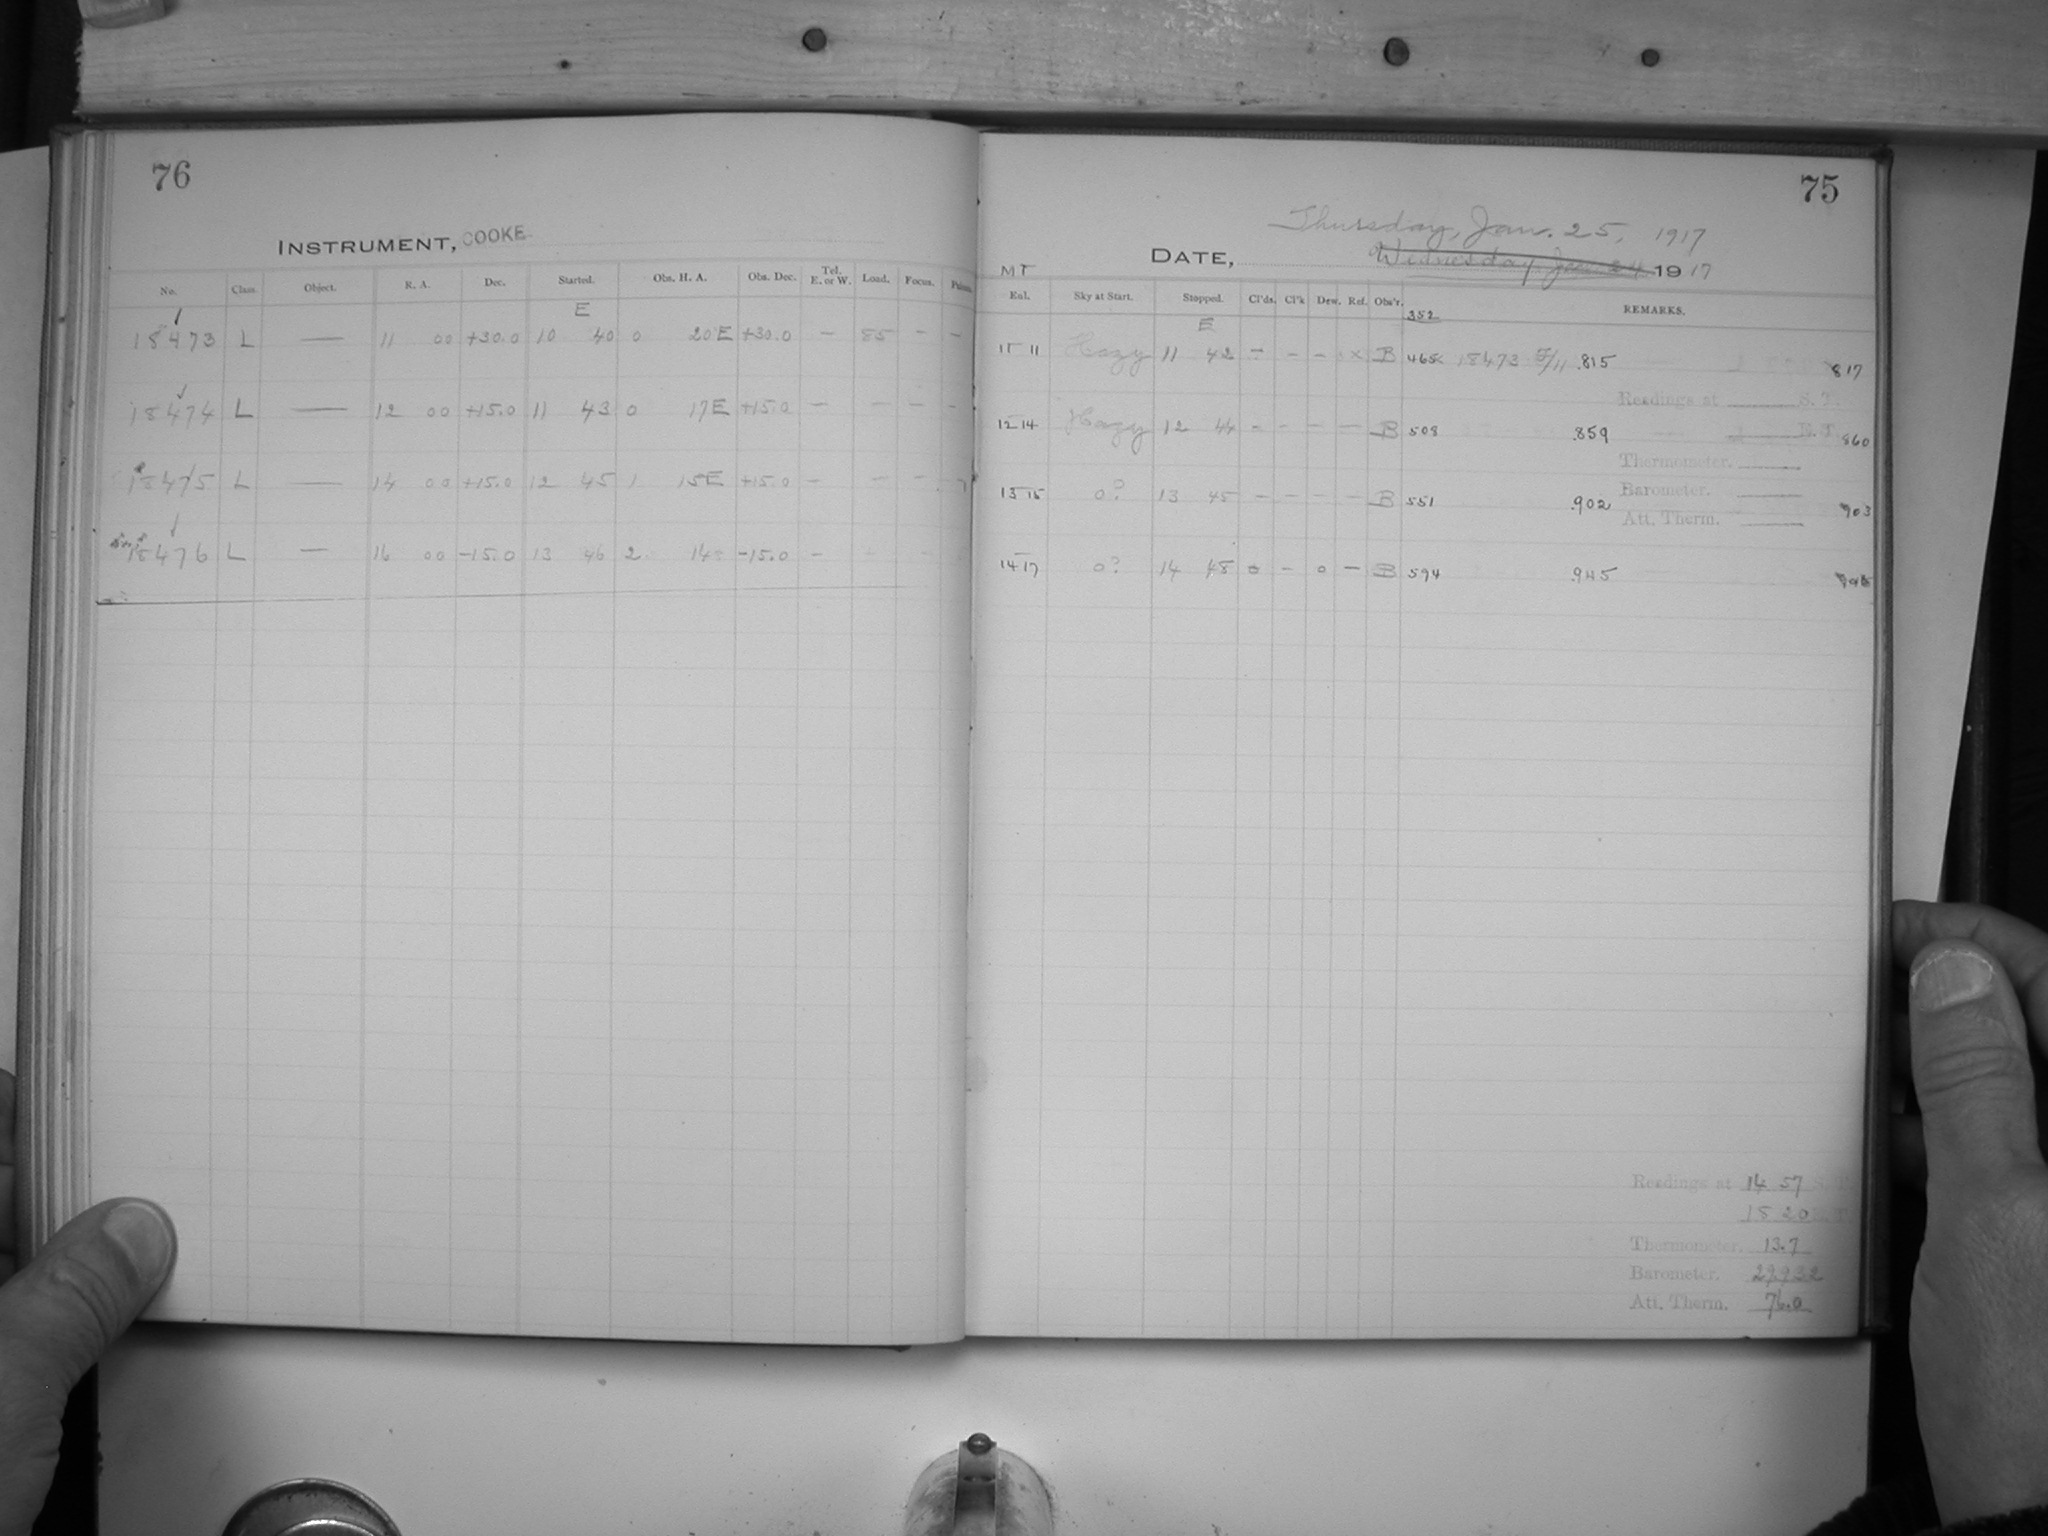 76
INSTRUMENT, COOKE
No. Class. Object. R. A. Dec. Started. Obs. H. A. Obs. Dec. Tel. E. or W. Load. Focus.
E
18473 L — 11 00 +30.0 10 40 0 20 E +30.0 — 85 — —
18474 L — 12 00 +15.0 11 43 0 17 E +15.0 — — — —
18475 L — 14 00 +15.0 12 45 1 15 E +15.0 — — —
18476 L — 16 00 -15.0 13 46 2 14 -15.0 —
75
Thursday, Jan. 25, 1917
DATE, Wednesday Jan. 24 1917
MT
Eul. Sky at Start. Stopped. Cl'ds. Cl'k Dew. Ref. Obs'r. REMARKS.
352
E
11 11 Hazy 11 42 — — — x B 465 18473 5/11 .815 817
Readings at S. T.
12 14 Hazy 12 44 — — — — B 508 .859 E. T. 860
Thermometer.
Barometer.
13 15 0? 13 45 — — — — B 551 .902 903
Att. Therm.
14 17 0? 14 48 0 — 0 — B 594 .945
Readings at 14 57 S. T.
15 20
Thermometer. 13.7
Barometer. 29.932
Att. Therm. 76.0